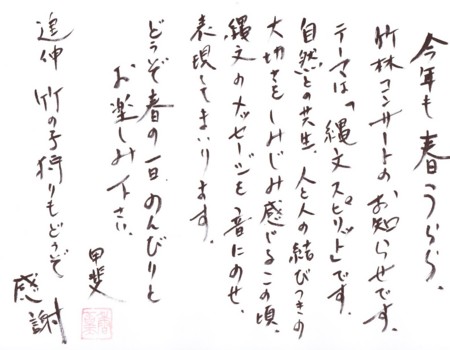 今年も春うらら、
竹林コンサートのお知らせです。
テーマは「縄文スピリット」です。
自然との共生、人と人の結びつきの
大切さをしみじみ感じるこの頃、
縄文のメッセージを音にのせ、
表現してまいります。
どうぞ春の一日、のんびりと
お楽しみ下さい。
甲斐
追伸 竹の子狩りもどうぞ
感謝